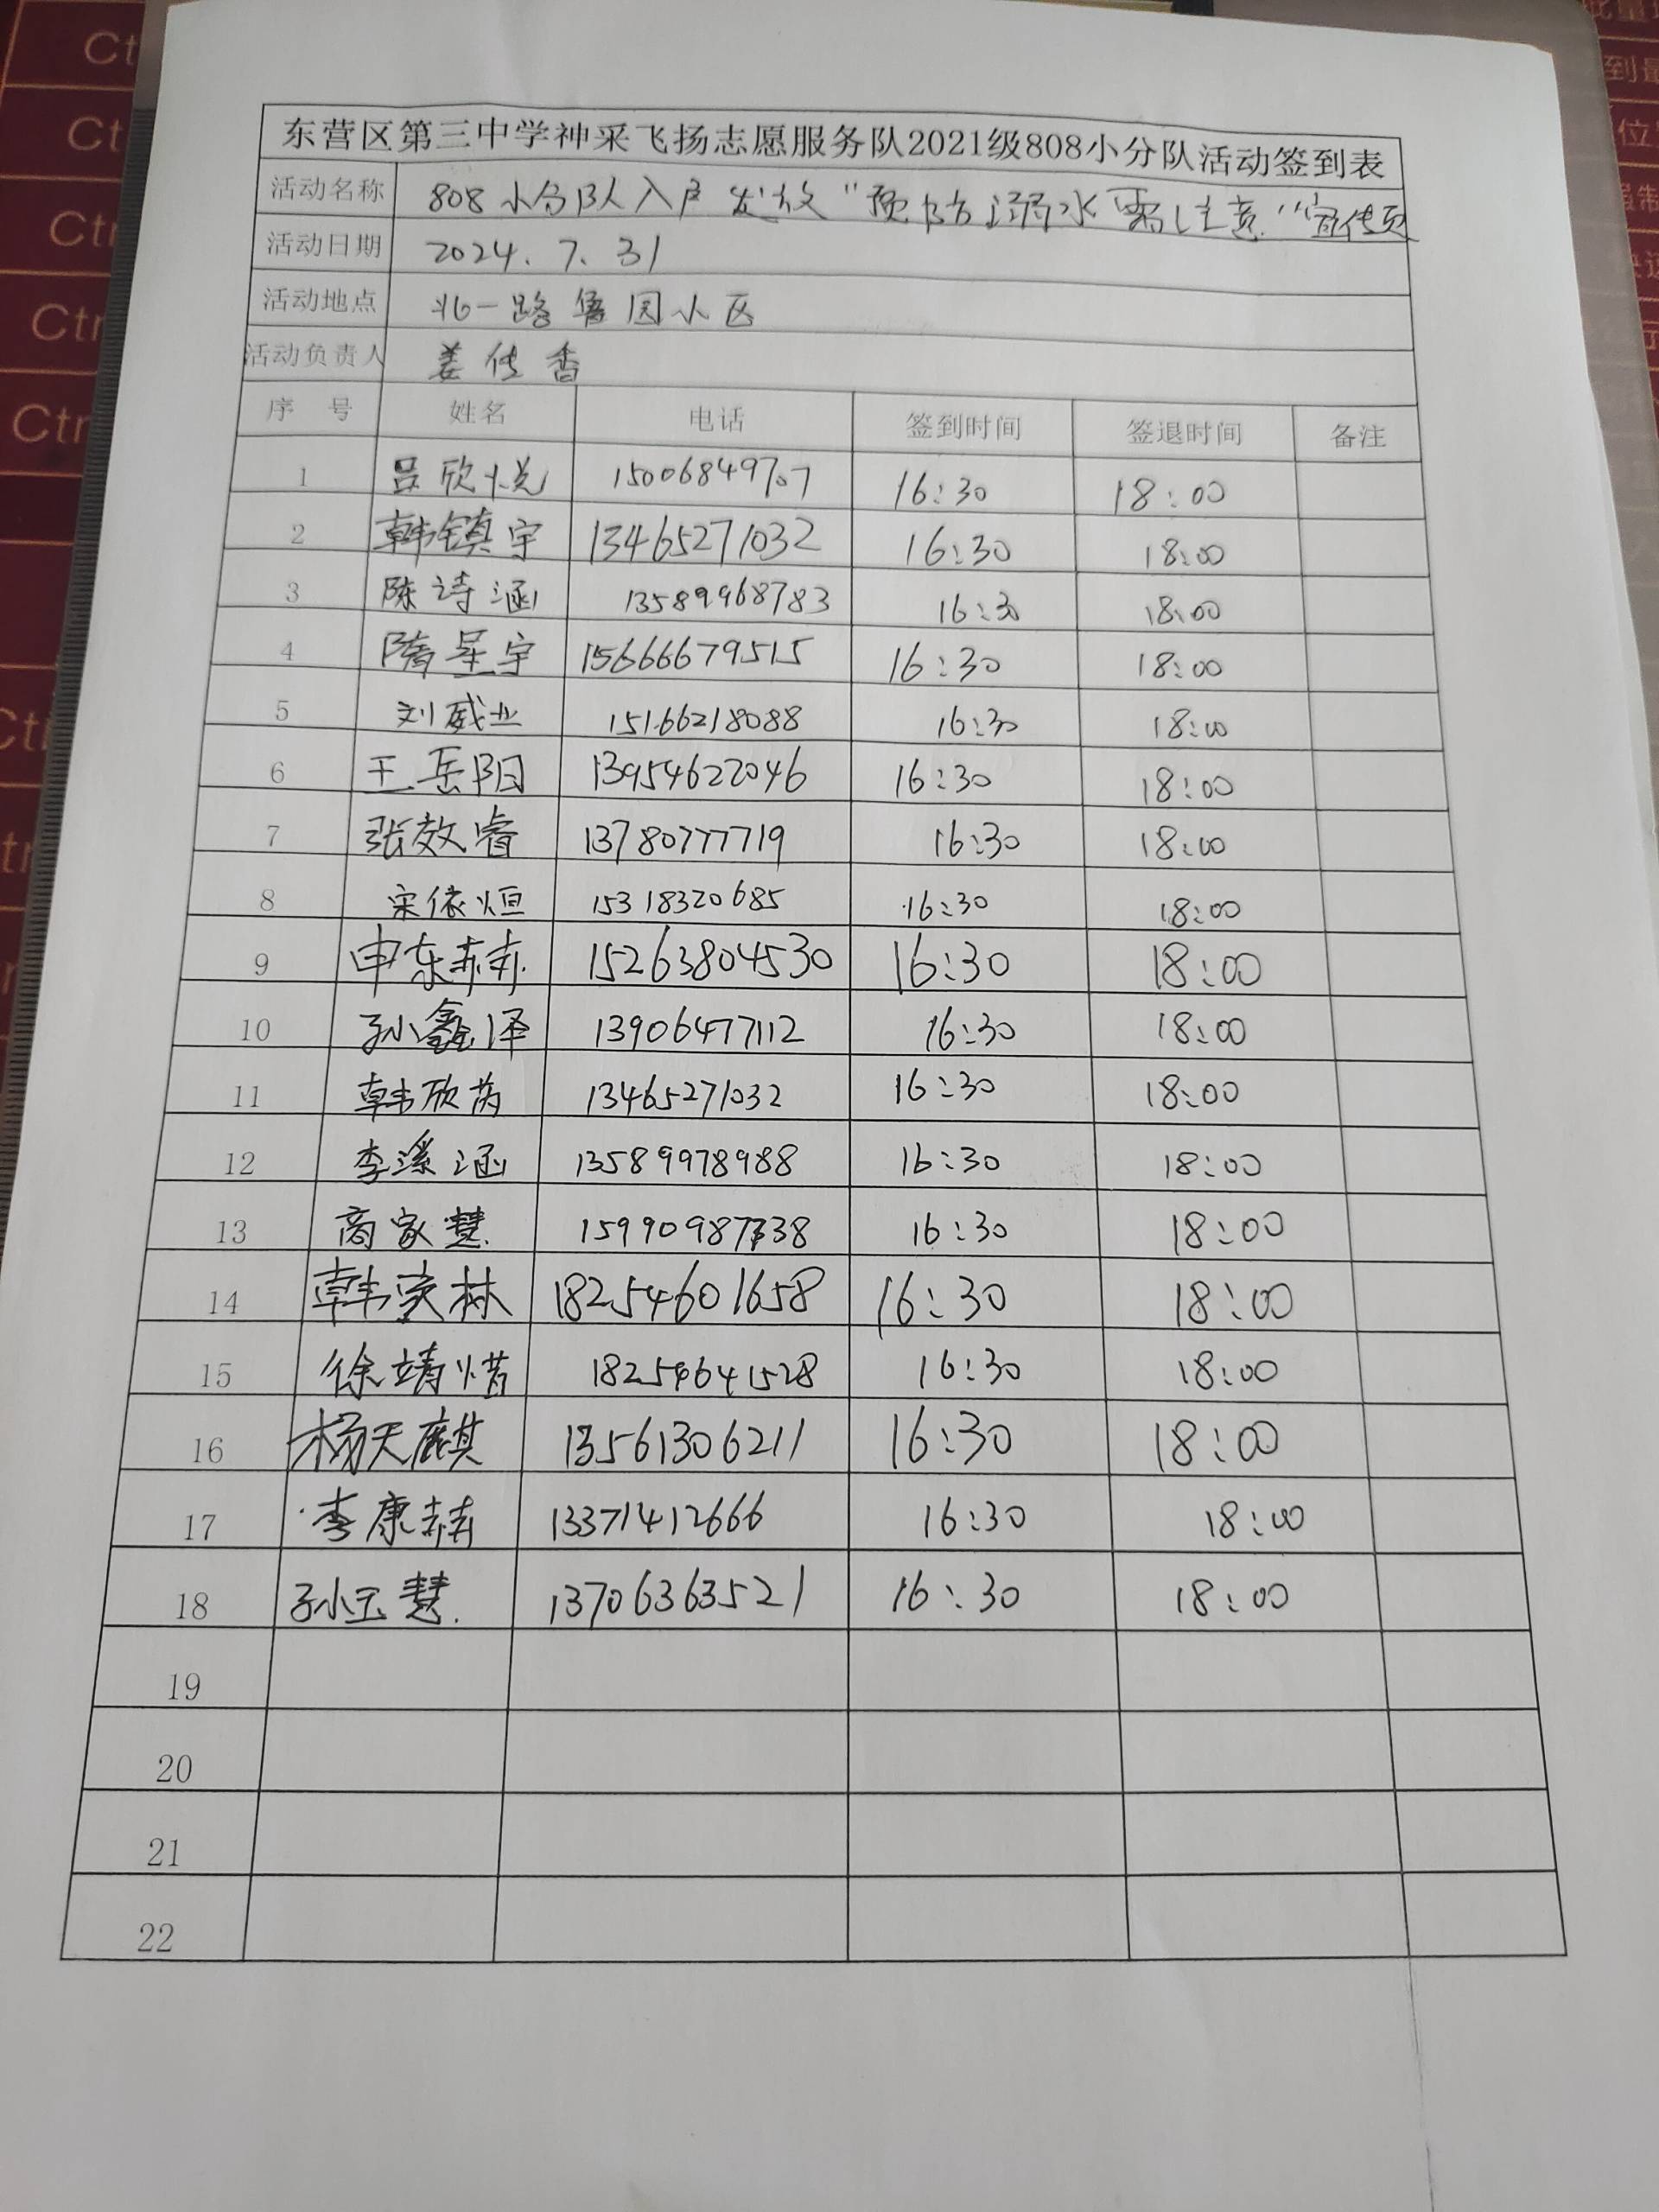 东营区第三中学神采飞扬志愿服务队2021级808小分队活动签到表
活动名称 808小分队入户发放“预防溺水需注意”宣传页
活动日期 2024.7.31
活动地点 北一路鲁园小区
活动负责人 姜传香
序 号 姓名 电话 签到时间 签退时间 备注
1 吕欣悦 15006849707 16:30 18:00
2 韩镇宇 13465271032 16:30 18:00
3 陈诗涵 13589968783 16:30 18:00
4 隋星宇 15666679515 16:30 18:00
5 刘威业 15166218088 16:30 18:00
6 王岳阳 13954622046 16:30 18:00
7 张效睿 13780777719 16:30 18:00
8 宋依烜 15318320685 16:30 18:00
9 申东赫 15263804530 16:30 18:00
10 孙鑫泽 13906477112 16:30 18:00
11 韩欣芮 13465271032 16:30 18:00
12 李溪涵 13589978988 16:30 18:00
13 商家慧 15990987338 16:30 18:00
14 韩奕林 18254601658 16:30 18:00
15 徐靖惜 18254641528 16:30 18:00
16 杨天麒 13561306211 16:30 18:00
17 李康赫 13371412666 16:30 18:00
18 孙玉慧 13706363521 16:30 18:00
19
20
21
22